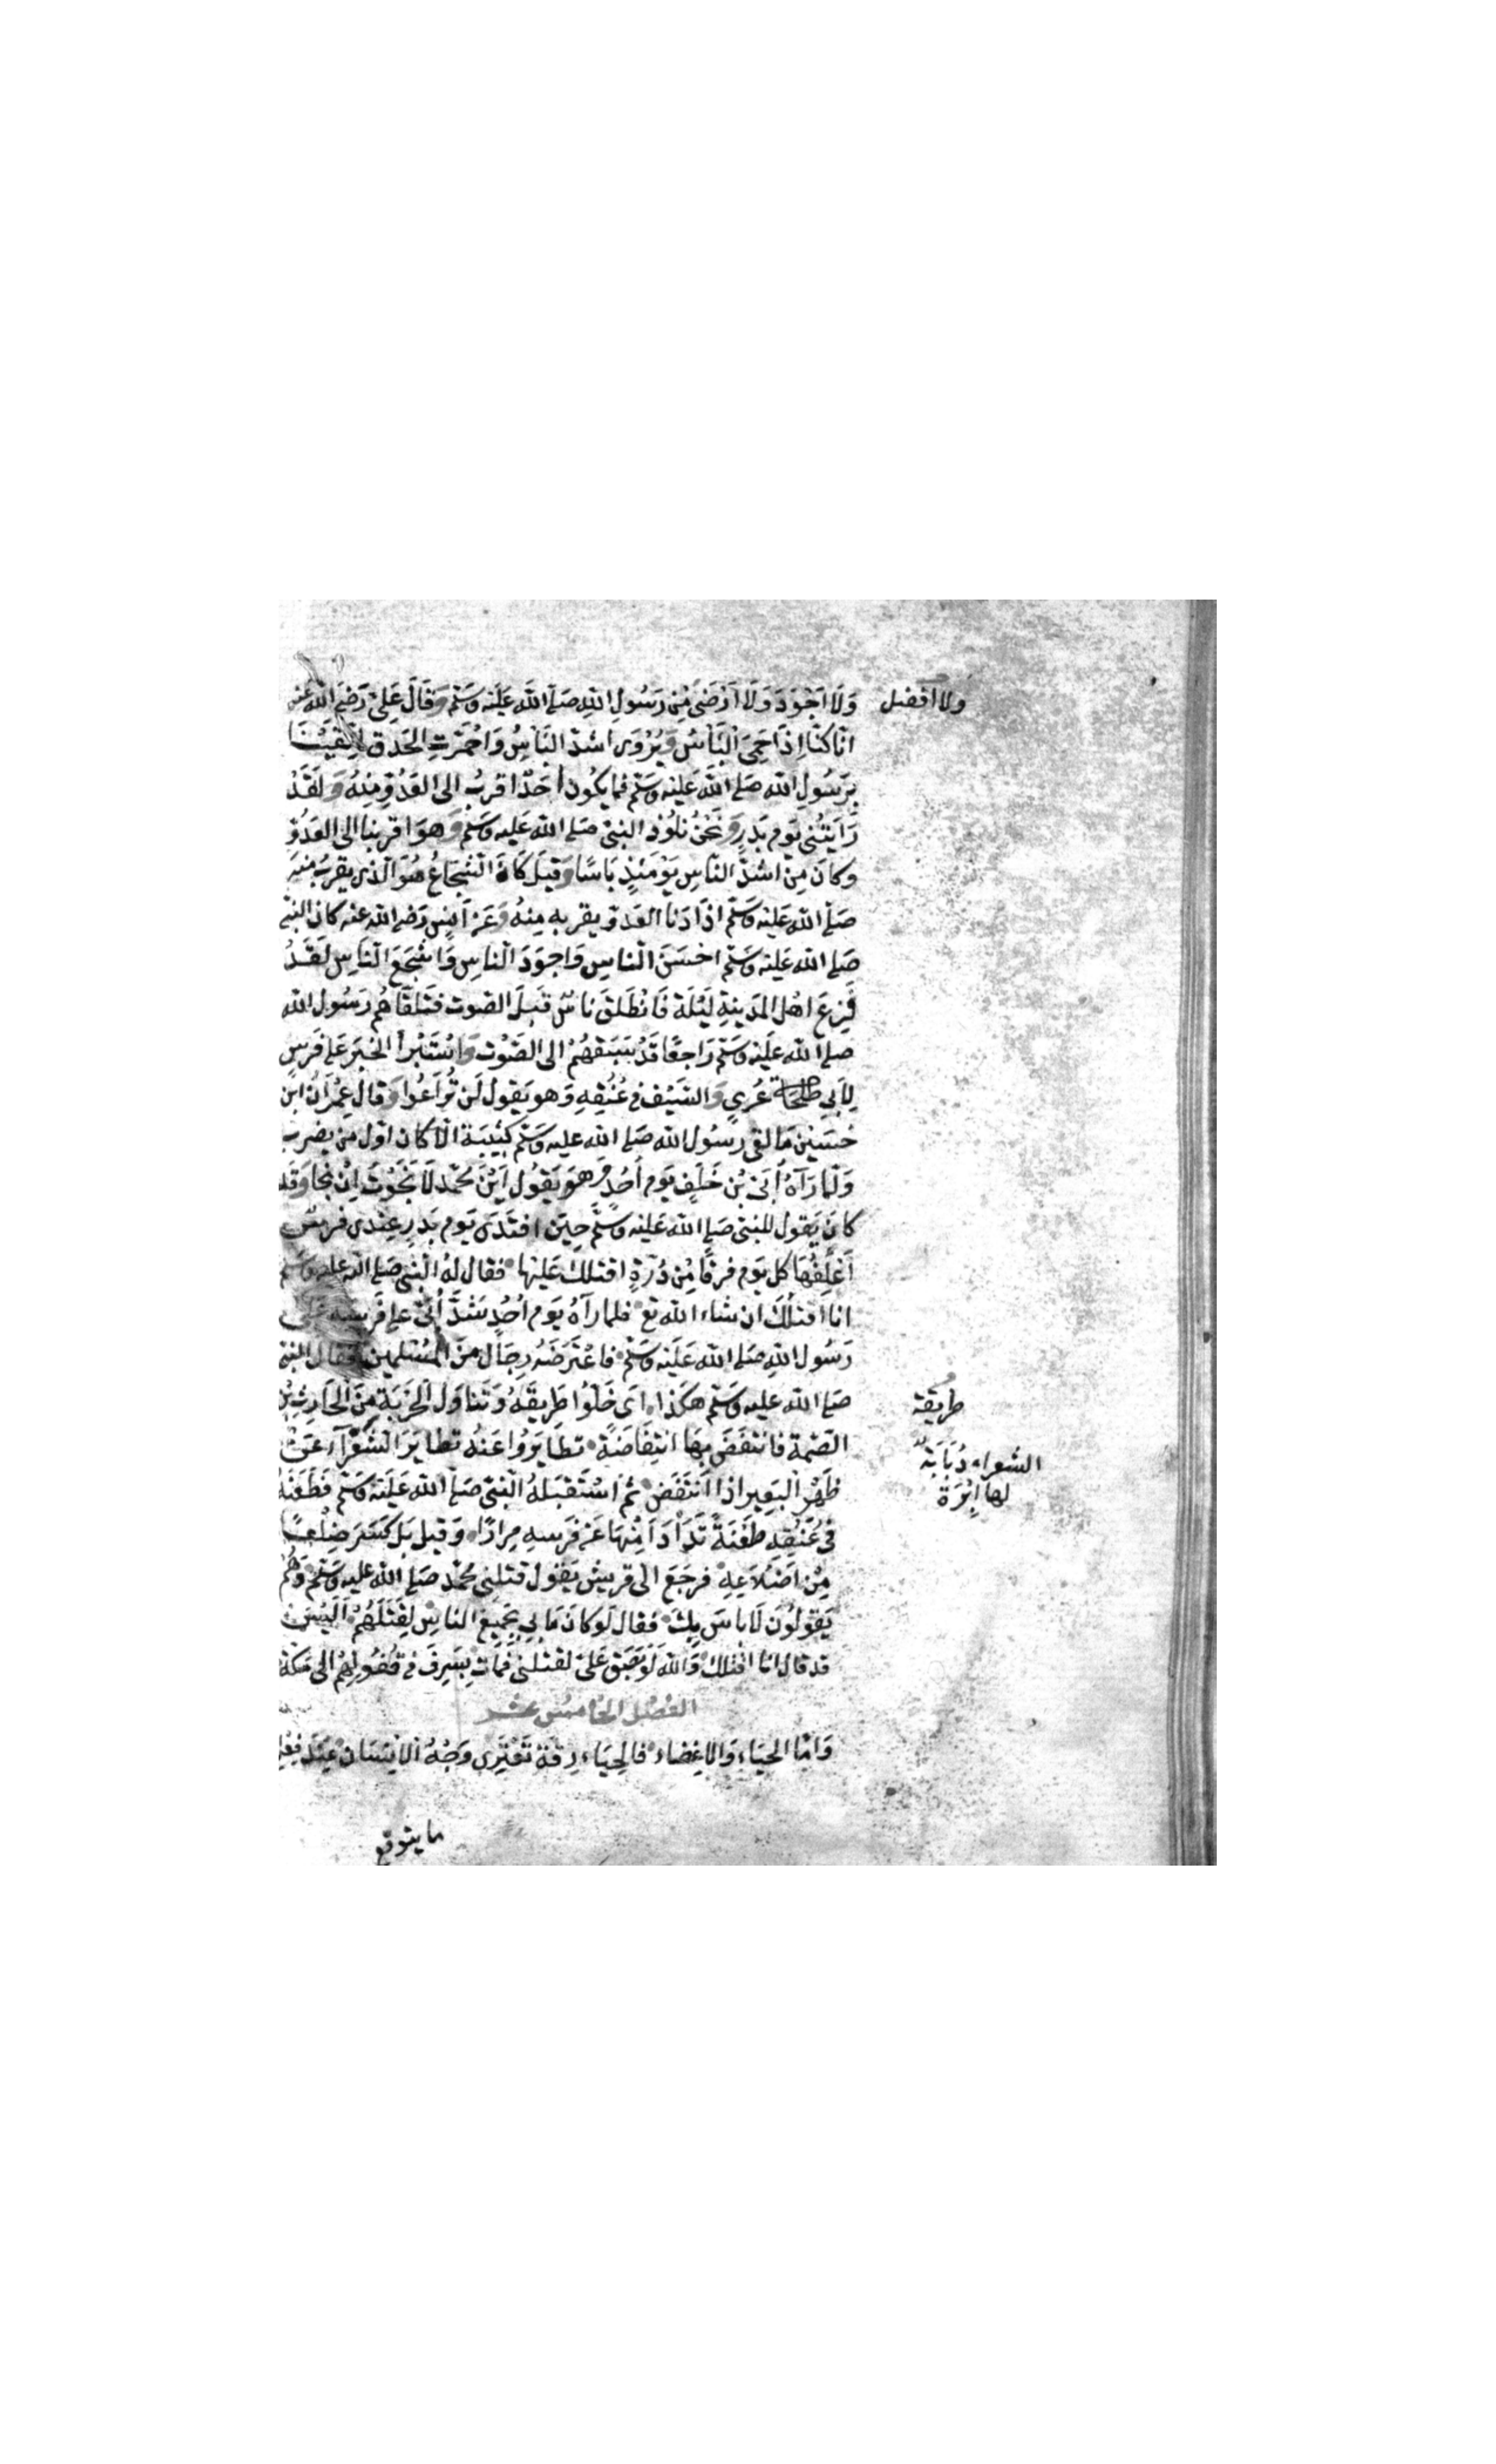 وَلَا اَجْوَدَ وَلَا اَرْضَى مِن رَسُولِ اللهِ صَلَّى اللهُ عَلَيْهِ وَسَلَّمَ وَقَالَ عَلِيّ رَضِيَ اللهُ عَنه
ولا افضل
انا كنّا اِذَا حَمِيَ الْبَأْسُ وَيُرْوَى اشتدّ البَأسُ وَاحْمَرَّتِ الحَدَق اتّقَيْنَا
بِرَسُولِ الله صَلى اللهُ عَلَيْهِ وَسَلّم فما يكُون اَحَدٌ اقربُ الى العَدُوِّ مِنْهُ وَلَقَدْ
رَاَيْتُنِي يَوم بَدرٍ وَنَحْنُ نلُوذ بالنبى صَلى الله عَليه وَسَلم وَهوَ اقربنا الى العَدُوِّ
وكانَ مِنْ اشدّ النّاسِ يَوْمَئِذٍ بَاسًا وَقيلَ كانَ الشجَاعُ هُوَ الذى يقربُ منه
صَلى الله عَليهِ وَسَلّم اذَا دَنا العَدوّ لقربه مِنهُ وَعَن اَنس رَضى الله عنه كان النبى
صَلى الله عَليه وَسَلّم احْسَنَ الناسِ وَاجوَدَ الناسِ وَاشْجَعَ النَاسِ لَقَدْ
فَزِعَ اهْل المَدينةِ لَيْلَة فَانْطَلقَ ناسٌ قِبَلَ الصّوت فتلقّاهُم رَسُول الله
صلى الله عَليهِ وَسَلّم رَاجعًا قَدْ سَبَقهُمْ الى الصَّوْت وَاسْتَبْرأ الخبَر عَلى فَرَسٍ
لِاَبِى طلْحَة عُرْيٍ وَالسَّيْف فى عُنُقِهِ وَهو يَقولُ لَن تُرَاعُوا وَقال عِمْرَانُ ابن
حُصَيْن مَا لقى رسُول الله صَلى الله عليه وَسَلم كَتِيبَة الّا كانَ اوّل من يضرب
وَلمّا رَآهُ اُبَىّ بْن خَلَفٍ يَوم اُحُدٍ وَهوَ يَقُول اَيْنَ مُحَمّد لَا نَجَوْتُ اِنْ نجَا وَقد
كانَ يَقول للنبى صَلى الله عَليه وَسَلّم حِينَ افتَدَى يَوم بَدرٍ عِنْدى فرس
اَعْلِفُهَا كل يَوم فرقًا مِنْ ذُرَةٍ اقتلكَ عَليْهَا فقال لهُ النبى صَلى الله عليه وسلم
انا اقتلُكَ ان شاء الله تع فلما رآهُ يَوم اُحُدٍ شَدَّ اُبَىّ على فَرَسِهِ عَلى
رَسُول اللهِ صَلى الله عَلَيْه وَسَلّم فاعْتَرَضَهُ رِجَال مِنَ المُسْلمين فقال النبى
صَلى الله عليه وَسَلم هكَذا اى خَلّوا طَرِيقَهُ وَتناوَل الحَرْبَة مِنَ الحَارِثِ بْنِ
طريقه
الصّمّة فانتفَضَ بهَا انتِفَاضَةً تطَايَرُوا عَنهُ تطايُرَ الشَّعْرَآء عَنْ
الشعراء ذُبَابَةٌ
لها اِبْرَة
ظَهْرِ الْبَعِير اذا انتَفَضَ ثُمّ اسْتَقبَلهُ النبى صَلى اللهُ عَلَيْه وَسَلّم فَطَعَنَهُ
فى عُنُقِهِ طَعْنَةً تَدَاْدَاَ مِنْهَا عَن فَرَسِهِ مِرَارًا وَقيل بَل كَسَرَ ضِلْعًا
مِنْ اَضْلَاعِهِ فرجَعَ الى قريش يَقول قتلنى مُحَمّد صَلى الله عَليه وَسَلم وَهُم
يَقولُون لَا باسَ بِكَ فقال لَوكانَ مَا بِى بِجَمِيعِ الناسِ لقتَلَهُمْ اَلَيْسَ
قد قال انا اقتلك وَالله لَوْ بَصَق عَلىّ لقتلنى فمات بِسَرِف فى قفُولِهِمْ الى مكة
الفصْل الخامس عشر
وَامّا الحيَاء وَالاِغضاء فالحيَاء رِقّة تَعْتَرِى وَجْهُ الانسَان عِندَ فِعْلِ
ما يتوقع